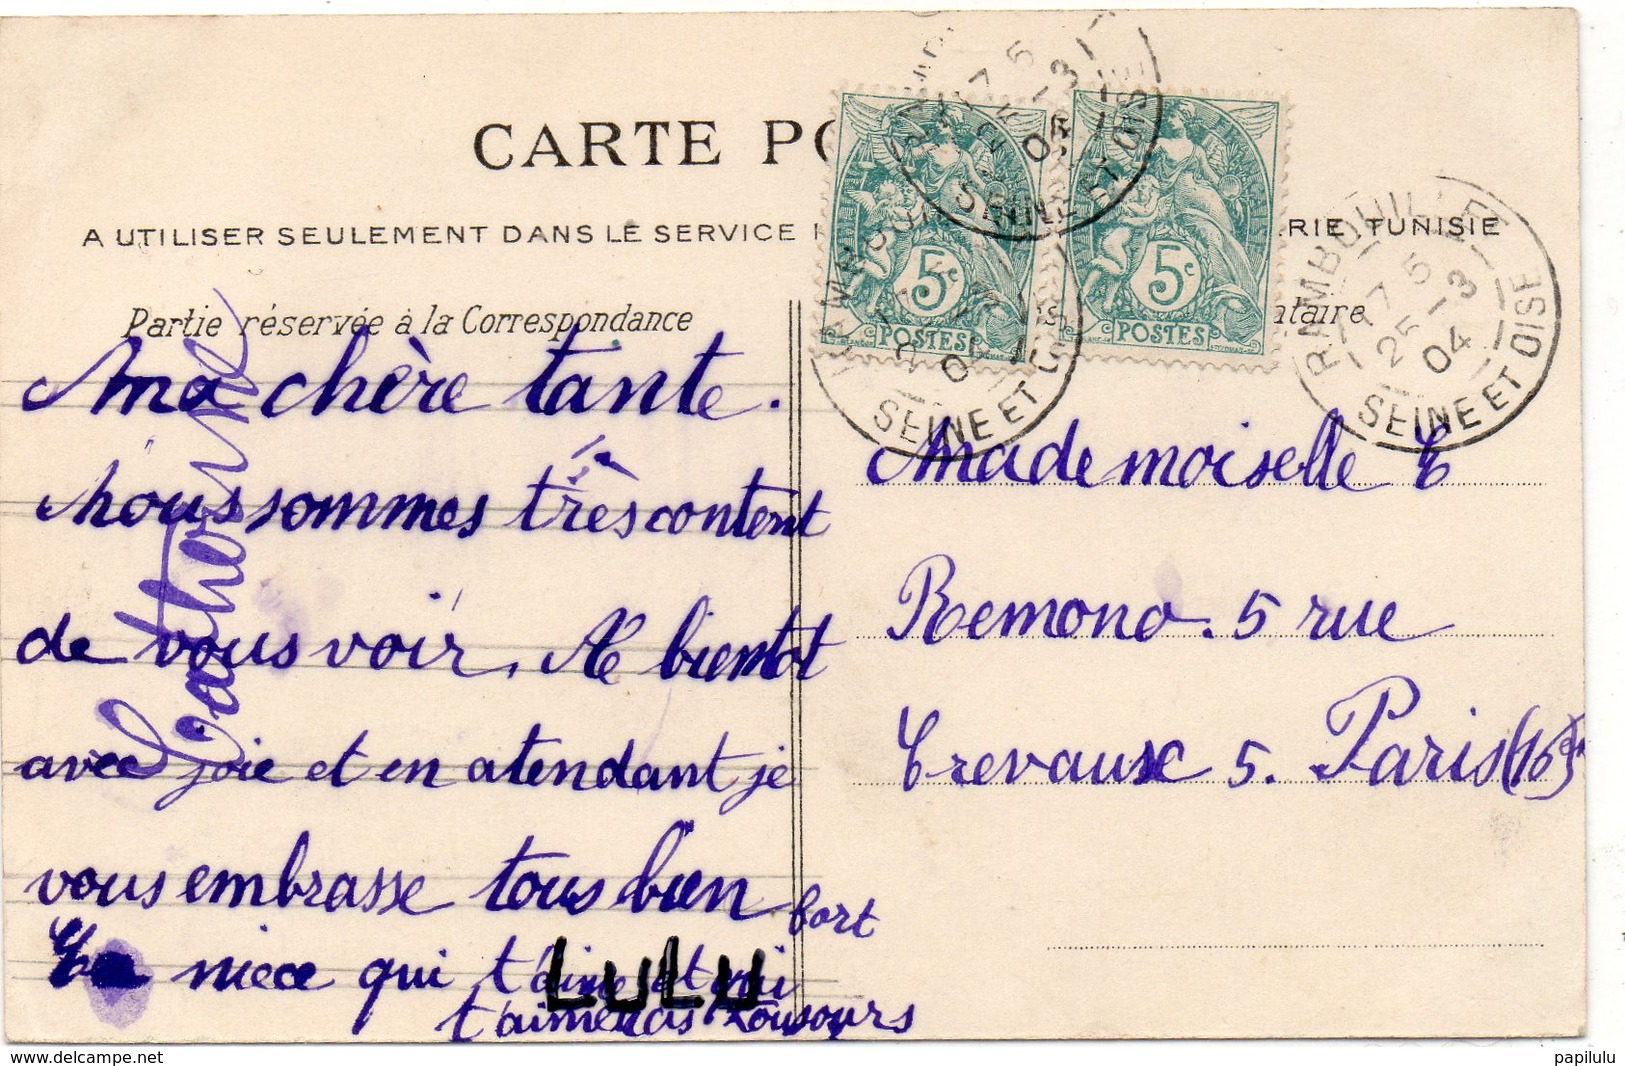 CARTE PO
A UTILISER SEULEMENT DANS LE SERVICE I RIE, TUNISIE
Partie réservée à la Correspondance
ataire
5c
POSTES
5c
POSTES
RAMBOUILLET
17 5
25 -3
04
SEINE ET OISE
17 5
25 -3
04
SEINE ET OISE
04
SEINE ET O
Ma chère tante.
Nous sommes très content
de vous voir. A bientot
avec joie et en atendant je
vous embrasse tous bien fort
niece qui t'aime et qui
t'aimerais toujours
Catherine
LULU
Mademoiselle C
Remond. 5 rue
Crevause 5. Paris (16
www.delcampe.net
papilulu